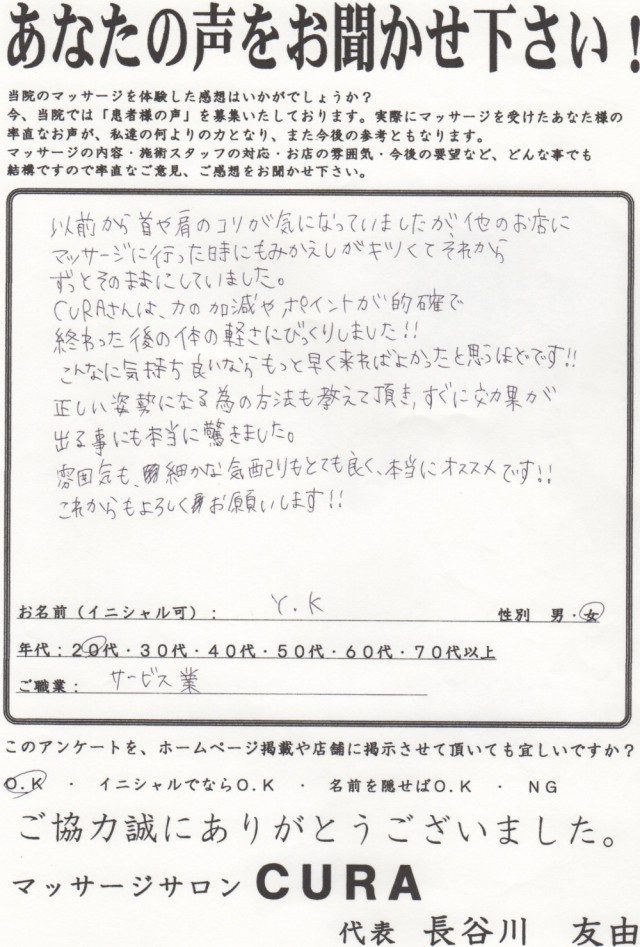 あなたの声をお聞かせ下さい！
当院のマッサージを体験した感想はいかがでしょうか？
今、当院では「患者様の声」を募集いたしております。実際にマッサージを受けたあなた様の
率直なお声が、私達の何よりの力となり、また今後の参考ともなります。
マッサージの内容・施術スタッフの対応・お店の雰囲気・今後の要望など、どんな事でも
結構ですので率直なご意見、ご感想をお聞かせ下さい。
以前から首や肩のコリが気になっていましたが、他のお店に
マッサージに行った時にもみかえしがキツくてそれから
ずっとそのままにしていました。
CURAさんは、力の加減やポイントが的確で
終わった後の体の軽さにびっくりしました!!
こんなに気持ち良いならもっと早く来ればよかったと思うほどです!!
正しい姿勢になる為の方法も教えて頂き、すぐに効果が
出る事にも本当に驚きました。
雰囲気も、細かな気配りもとても良く、本当にオススメです!!
これからもよろしくお願いします!!
お名前（イニシャル可）： Y.K 性別 男・女
年代：２０代・３０代・４０代・５０代・６０代・７０代以上
ご職業： サービス業
このアンケートを、ホームページ掲載や店舗に掲示させて頂いても宜しいですか？
O.K ・ イニシャルでならO.K ・ 名前を隠せばO.K ・ NG
ご協力誠にありがとうございました。
マッサージサロン CURA
代表 長谷川 友由